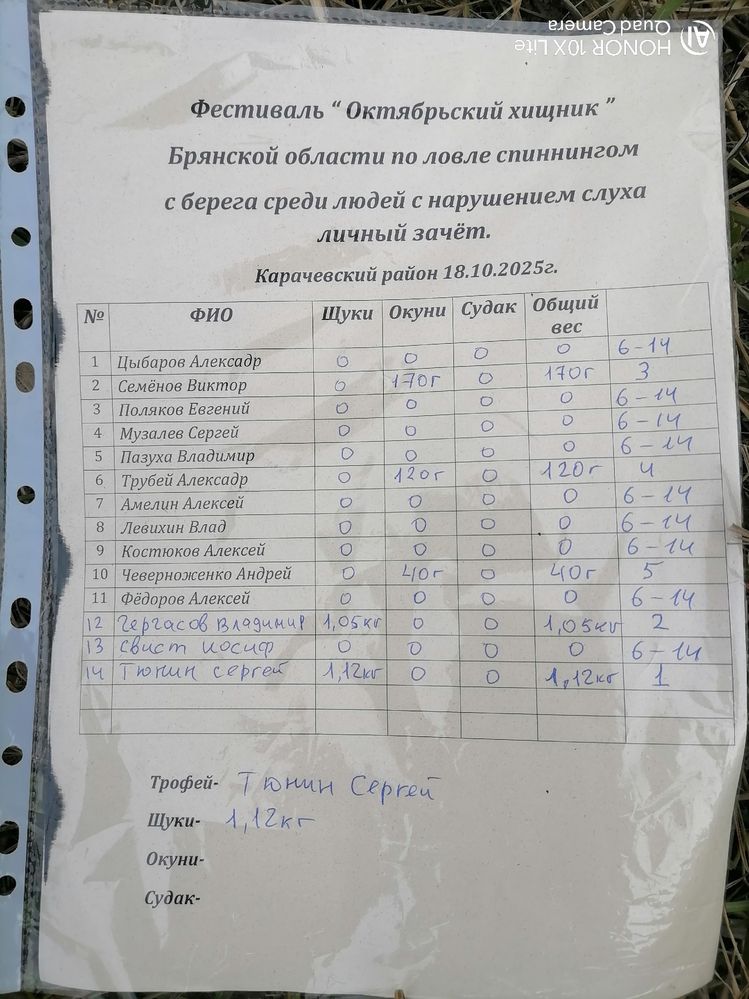 HONOR 10X Lite
Quad Camera
AI
Фестиваль “ Октябрьский хищник ”
Брянской области по ловле спиннингом
с берега среди людей с нарушением слуха
личный зачёт.
Карачевский район 18.10.2025г.
№ ФИО Щуки Окуни Судак Общий вес
1 Цыбаров Алексадр 0 0 0 0 6-14
2 Семёнов Виктор 0 170г 0 170г 3
3 Поляков Евгений 0 0 0 0 6-14
4 Музалев Сергей 0 0 0 0 6-14
5 Пазуха Владимир 0 0 0 0 6-14
6 Трубей Алексадр 0 120г 0 120г 4
7 Амелин Алексей 0 0 0 0 6-14
8 Левихин Влад 0 0 0 0 6-14
9 Костюков Алексей 0 0 0 0 6-14
10 Чеверноженко Андрей 0 40г 0 40г 5
11 Фёдоров Алексей 0 0 0 0 6-14
12 Чергасов Владимир 1,05кг 0 0 1,05кг 2
13 Свист Иосиф 0 0 0 0 6-14
14 Тюнин Сергей 1,12кг 0 0 1,12кг 1
Трофей- Тюнин Сергей
Щуки- 1,12кг
Окуни-
Судак-